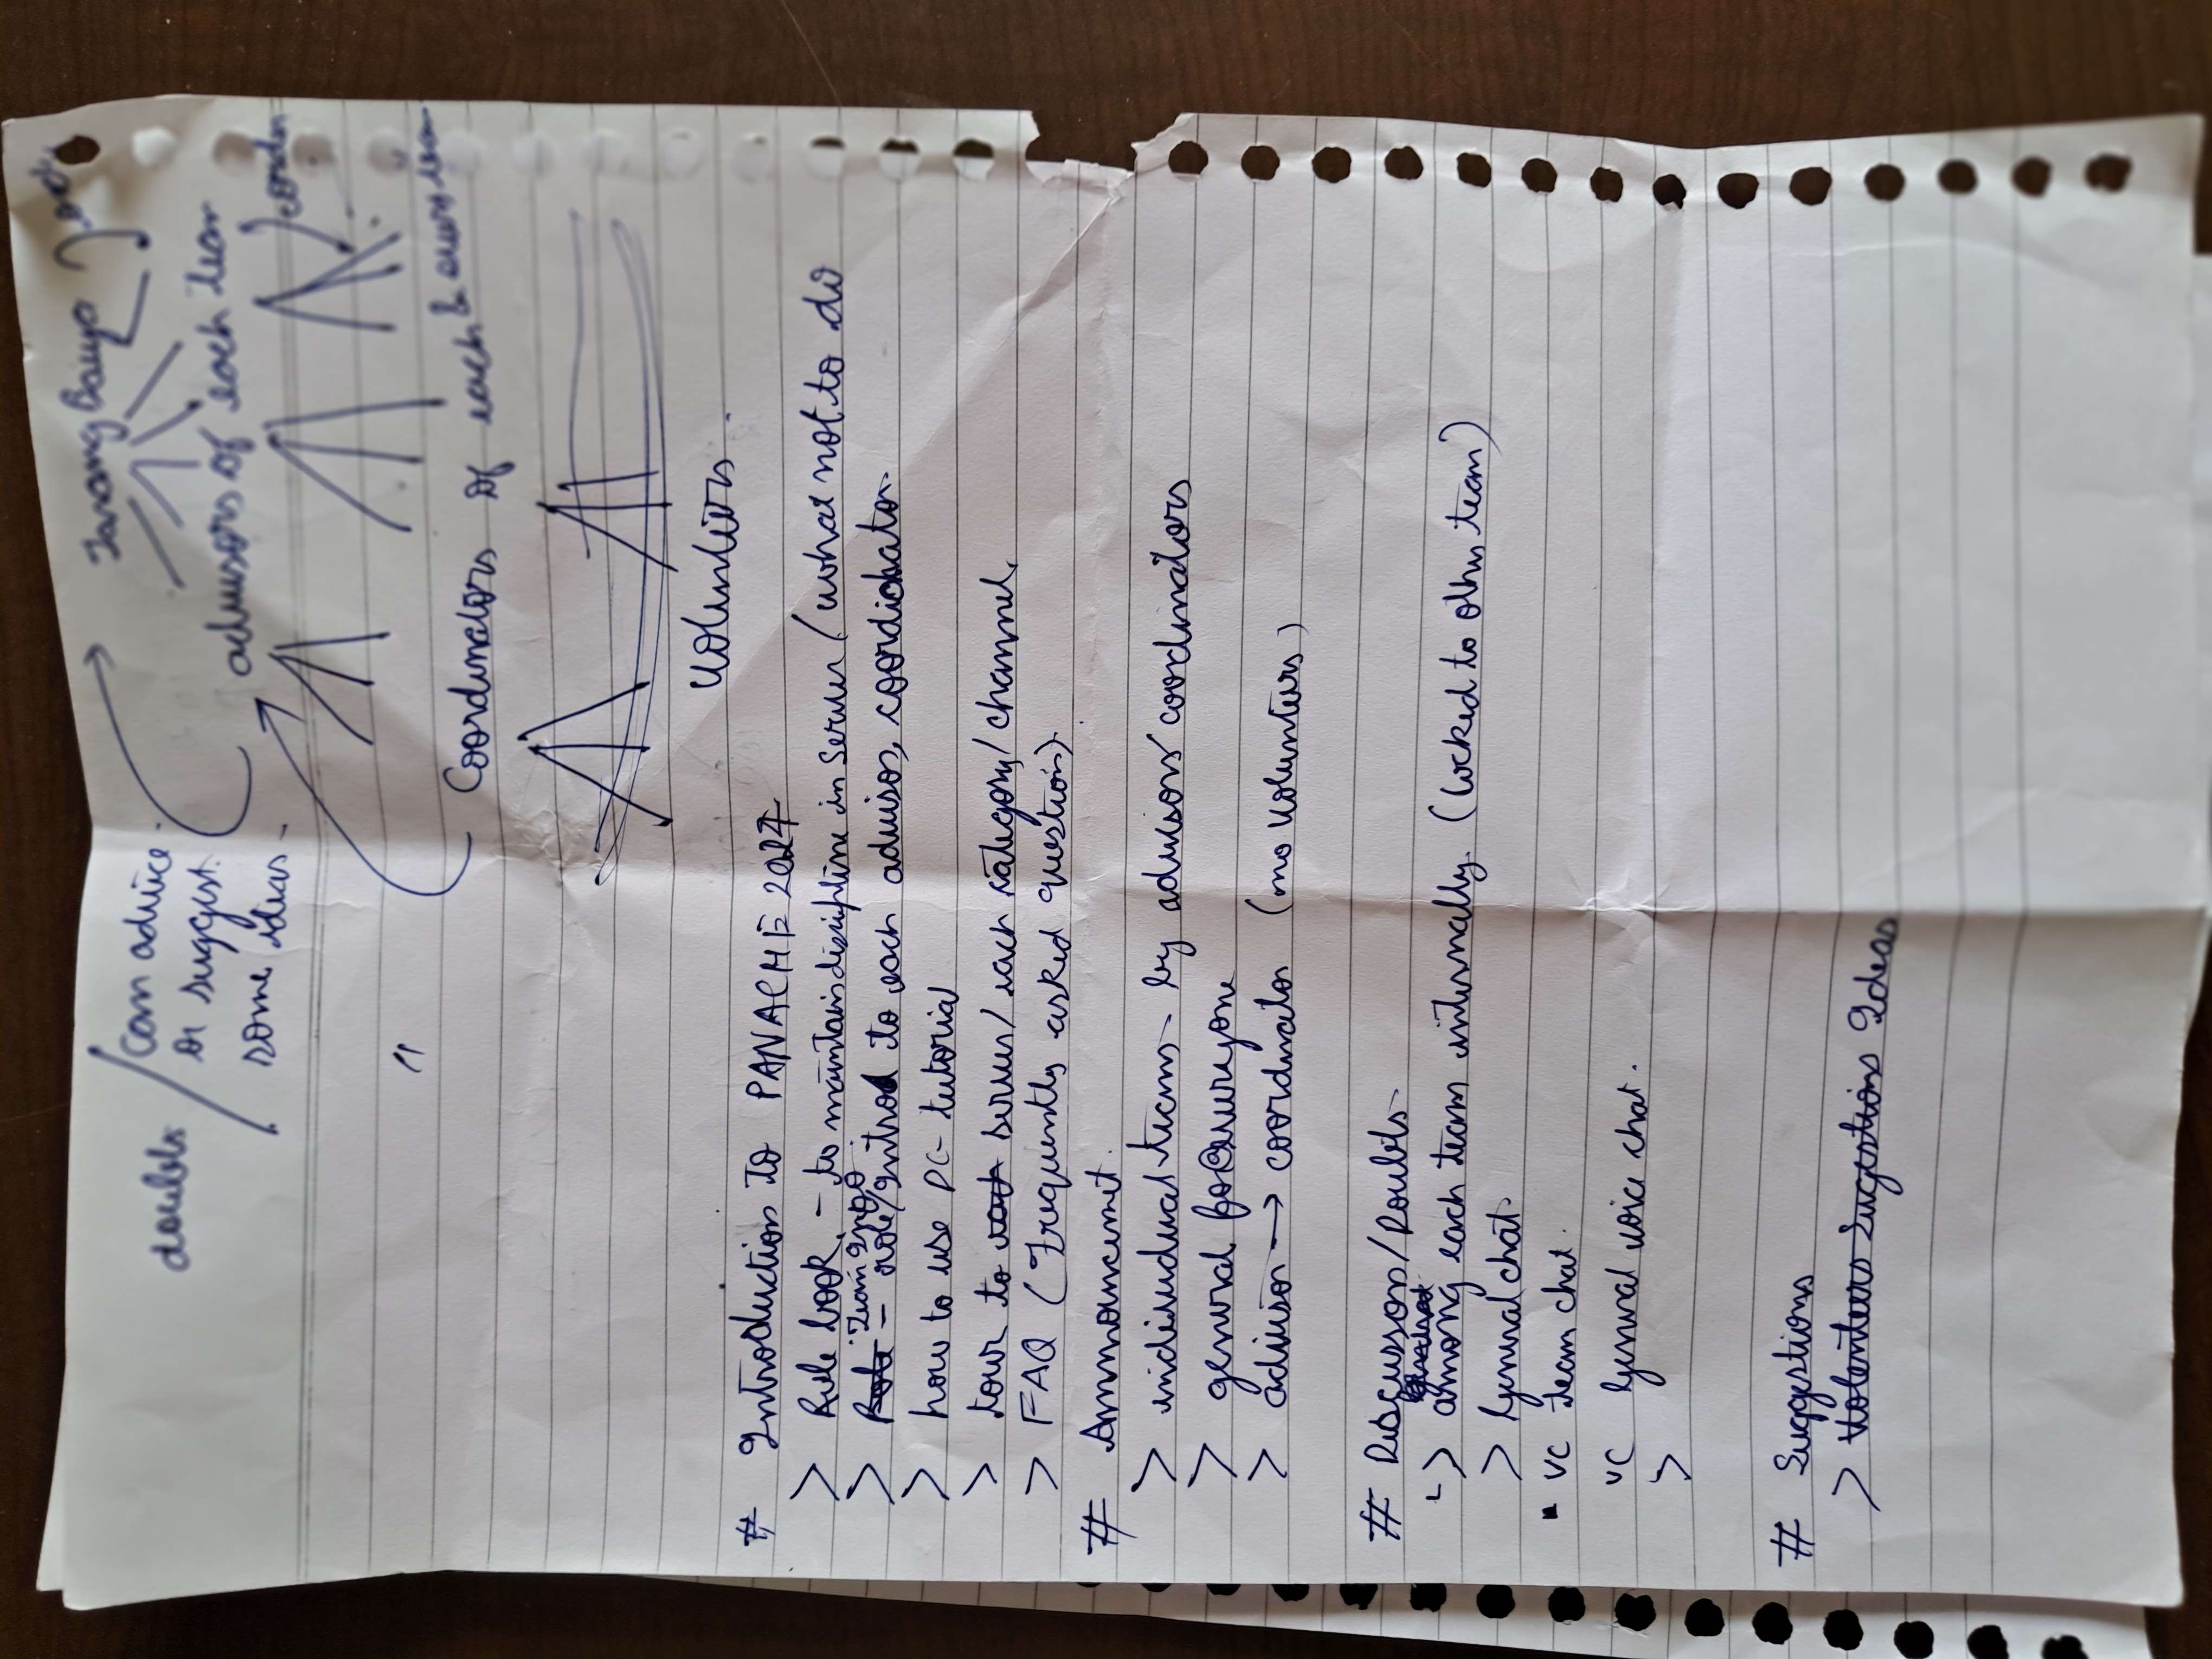 doubts / can advice
or suggest
some ideas -
"
advisors of each team
Coordinators of each & every team
Volunteers.
# Introduction to PANACHE 2024
> Rule book, - to maintain disipline in Server (what not to do
> Team Info - role/Introd to each advisor, coordinator.
> how to use DC - tutorial
> tour to server/each category/channel.
> FAQ (Frequently asked questions)
# Announcement.
> individual teams - by advisors coordinators
> general for @everyone
> advisor → coordinator (no volunteers)
# Discussons/Doubts.
> among each team internally. (locked to other team)
> General chat.
VC team chat.
VC General voice chat.
>
# Suggestions
> Volenteers Sugestions Ideas